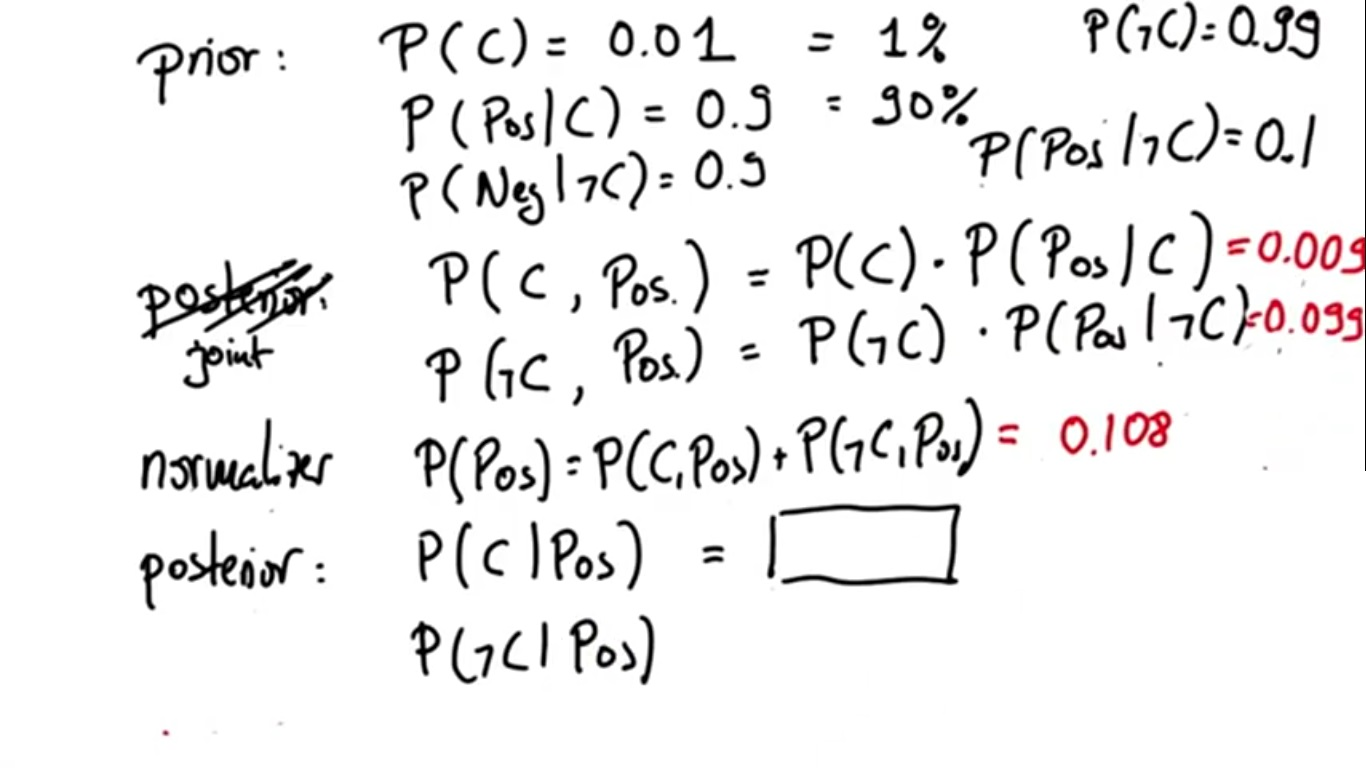 prior: P(C) = 0.01 = 1% P(¬C)=0.99
P(Pos|C) = 0.9 = 90%
P(Pos|¬C)=0.1
P(Neg|¬C)= 0.9
posterior: P(C, Pos.) = P(C)·P(Pos|C) =0.009
joint P(¬C, Pos.) = P(¬C)·P(Pos|¬C)=0.099
normalizer P(Pos)=P(C,Pos)+P(¬C,Pos) = 0.108
posterior: P(C|Pos) =
P(¬C|Pos)